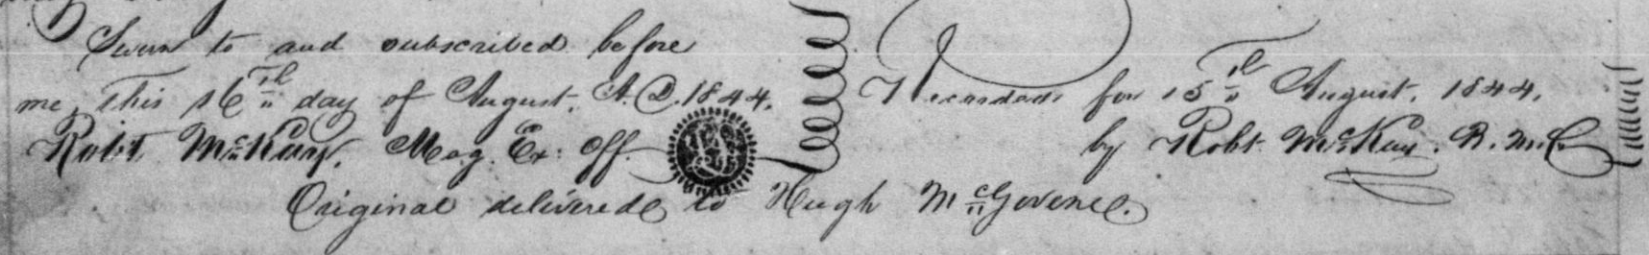 Sworn to and subscribed before
me, This 16th day of August. A.D. 1844.
Robt McKay. Mag. Ex: Off.
Recorded for 15th August. 1844.
by Robt. McKay. R. M. C
Original delivered to Hugh McGovene.